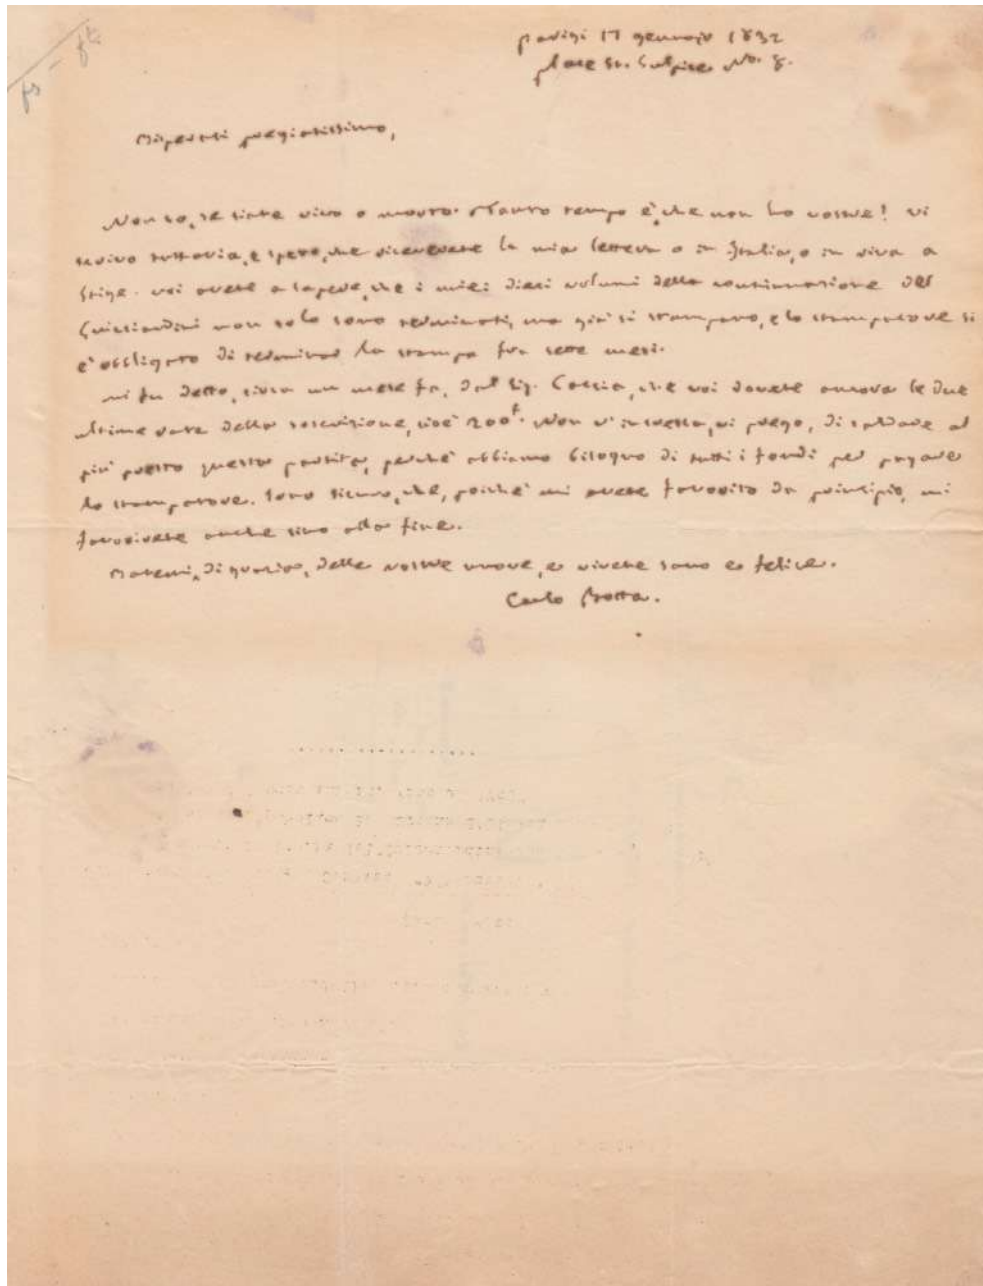 parigi 17 gennajo 1832
place St. Sulpice No. 8.
pregiatissimo,
Non so, se siate vivo o morto. Tanto tempo è, che non ho vostre! Vi
scrivo tuttavia, e spero, che riceverete la mia lettera o in Italia, o in riva a
Stige. Voi avete a sapere, che i miei dieci volumi della continuazione del
Guicciardini non solo sono terminati, ma già si stampano, e lo stampatore si
è obbligato di terminar la stampa fra sette mesi.
Mi fu detto, circa un mese fa, dal Sig. che voi dovete ancora le due
ultime rate della soscrizione, cioè 200f. Non v'incresca, vi prego, di saldare al
più presto questa partita, perchè abbiamo bisogno di tutti i fondi per pagare
lo stampatore. Sono sicuro, che, poichè mi avete favorito da principio, mi
favorirete anche sino alla fine.
di grazia, delle vostre nuove, e vivete sano e felice.
Carlo Botta.